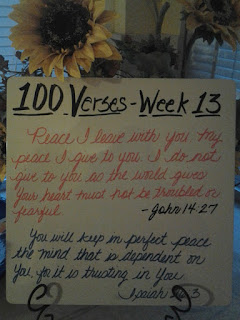 100 Verses - Week 13
Peace I leave with you. My
peace I give to you. I do not
give to you as the world gives
Your heart must not be troubled or
fearful
- John 14:27
You will keep in perfect peace
the mind that is dependent on
You, for it is trusting in You.
Isaiah 3